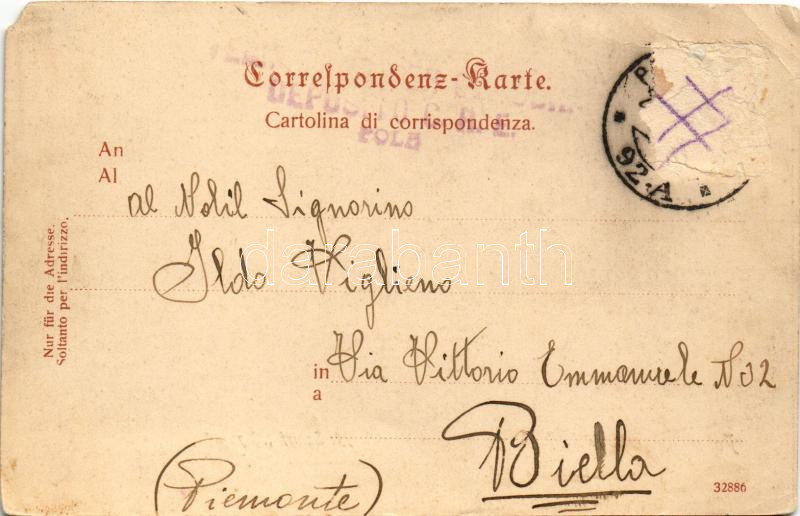 Correspondenz-Karte.
Cartolina di corrispondenza.
POLA
92.A
An
Al
al Nobil Signorino
Ildo Viglieno
darabanth
Nur für die Adresse.
Soltanto per l'indirizzo.
in
a
Via Vittorio Emmanuele N 32
Biella
(Piemonte)
32886